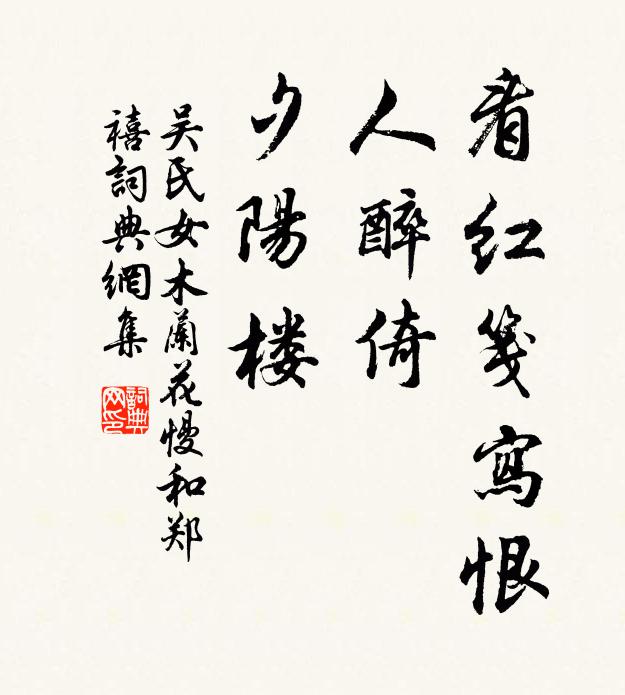 看红笺寫恨
人醉倚
夕陽楼
吴氏女木蘭花慢和郑
禧詞典網集
詞典
网印